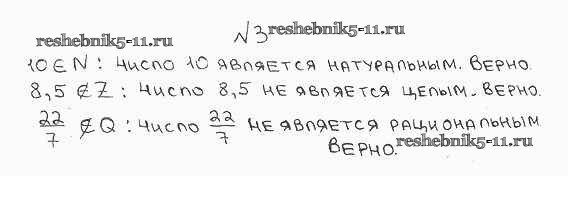 №3
reshebnik5-11.ru
reshebnik5-11.ru
10 ∈ N : число 10 является натуральным. Верно.
8,5 ∉ Z : число 8,5 не является целым. Верно.
22/7 ∉ Q : число 22/7 не является рациональным
Верно.
reshebnik5-11.ru